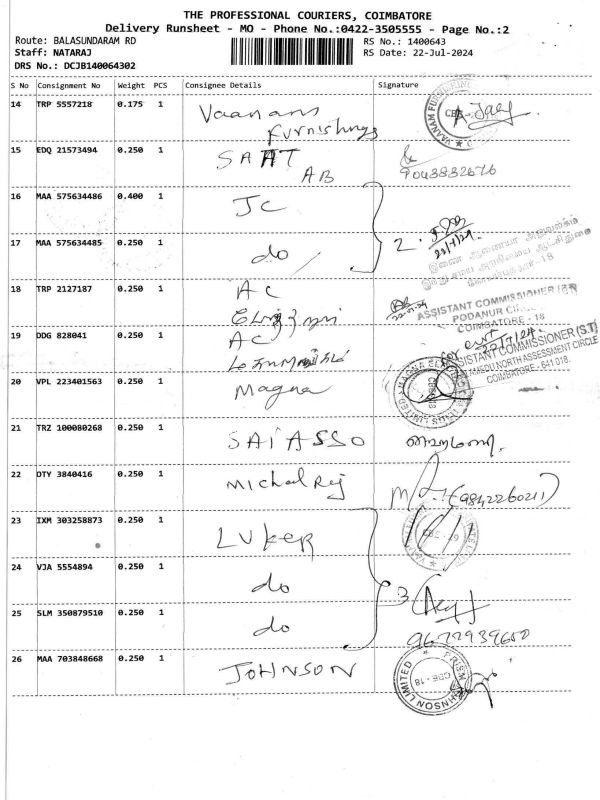 THE PROFESSIONAL COURIERS, COIMBATORE
Delivery Runsheet - MO - Phone No.:0422-3505555 - Page No.:2
Route: BALASUNDARAM RD RS No.: 1400643
Staff: NATARAJ RS Date: 22-Jul-2024
DRS No.: DCJB140064302
S No Consignment No Weight PCS Consignee Details Signature
14 TRP 5557218 0.175 1 Vaanam
Furnishings
15 EDQ 21573494 0.250 1 SAAT
AB 9043832676
16 MAA 575634486 0.400 1 JC
2.
17 MAA 575634485 0.250 1 do
18 TRP 2127187 0.250 1 AC
ASSISTANT COMMISSIONER (ST)
PODANUR
COIMBATORE - 18
19 DDG 828041 0.250 1 AC
ASSISTANT COMMISSIONER (S.T)
NORTH ASSESSMENT CIRCLE
COIMBATORE - 641 018.
20 VPL 223401563 0.250 1 Magna
21 TRZ 100080268 0.250 1 SAI ASSO
22 DTY 3840416 0.250 1 Michal Raj
(9842260211)
23 IXM 303258873 0.250 1 LUKER
24 VJA 5554894 0.250 1 do
3
25 SLM 350879510 0.250 1 do
9677939650
26 MAA 703848668 0.250 1 JOHNSON
PRISM JOHNSON LIMITED
CBE - 18